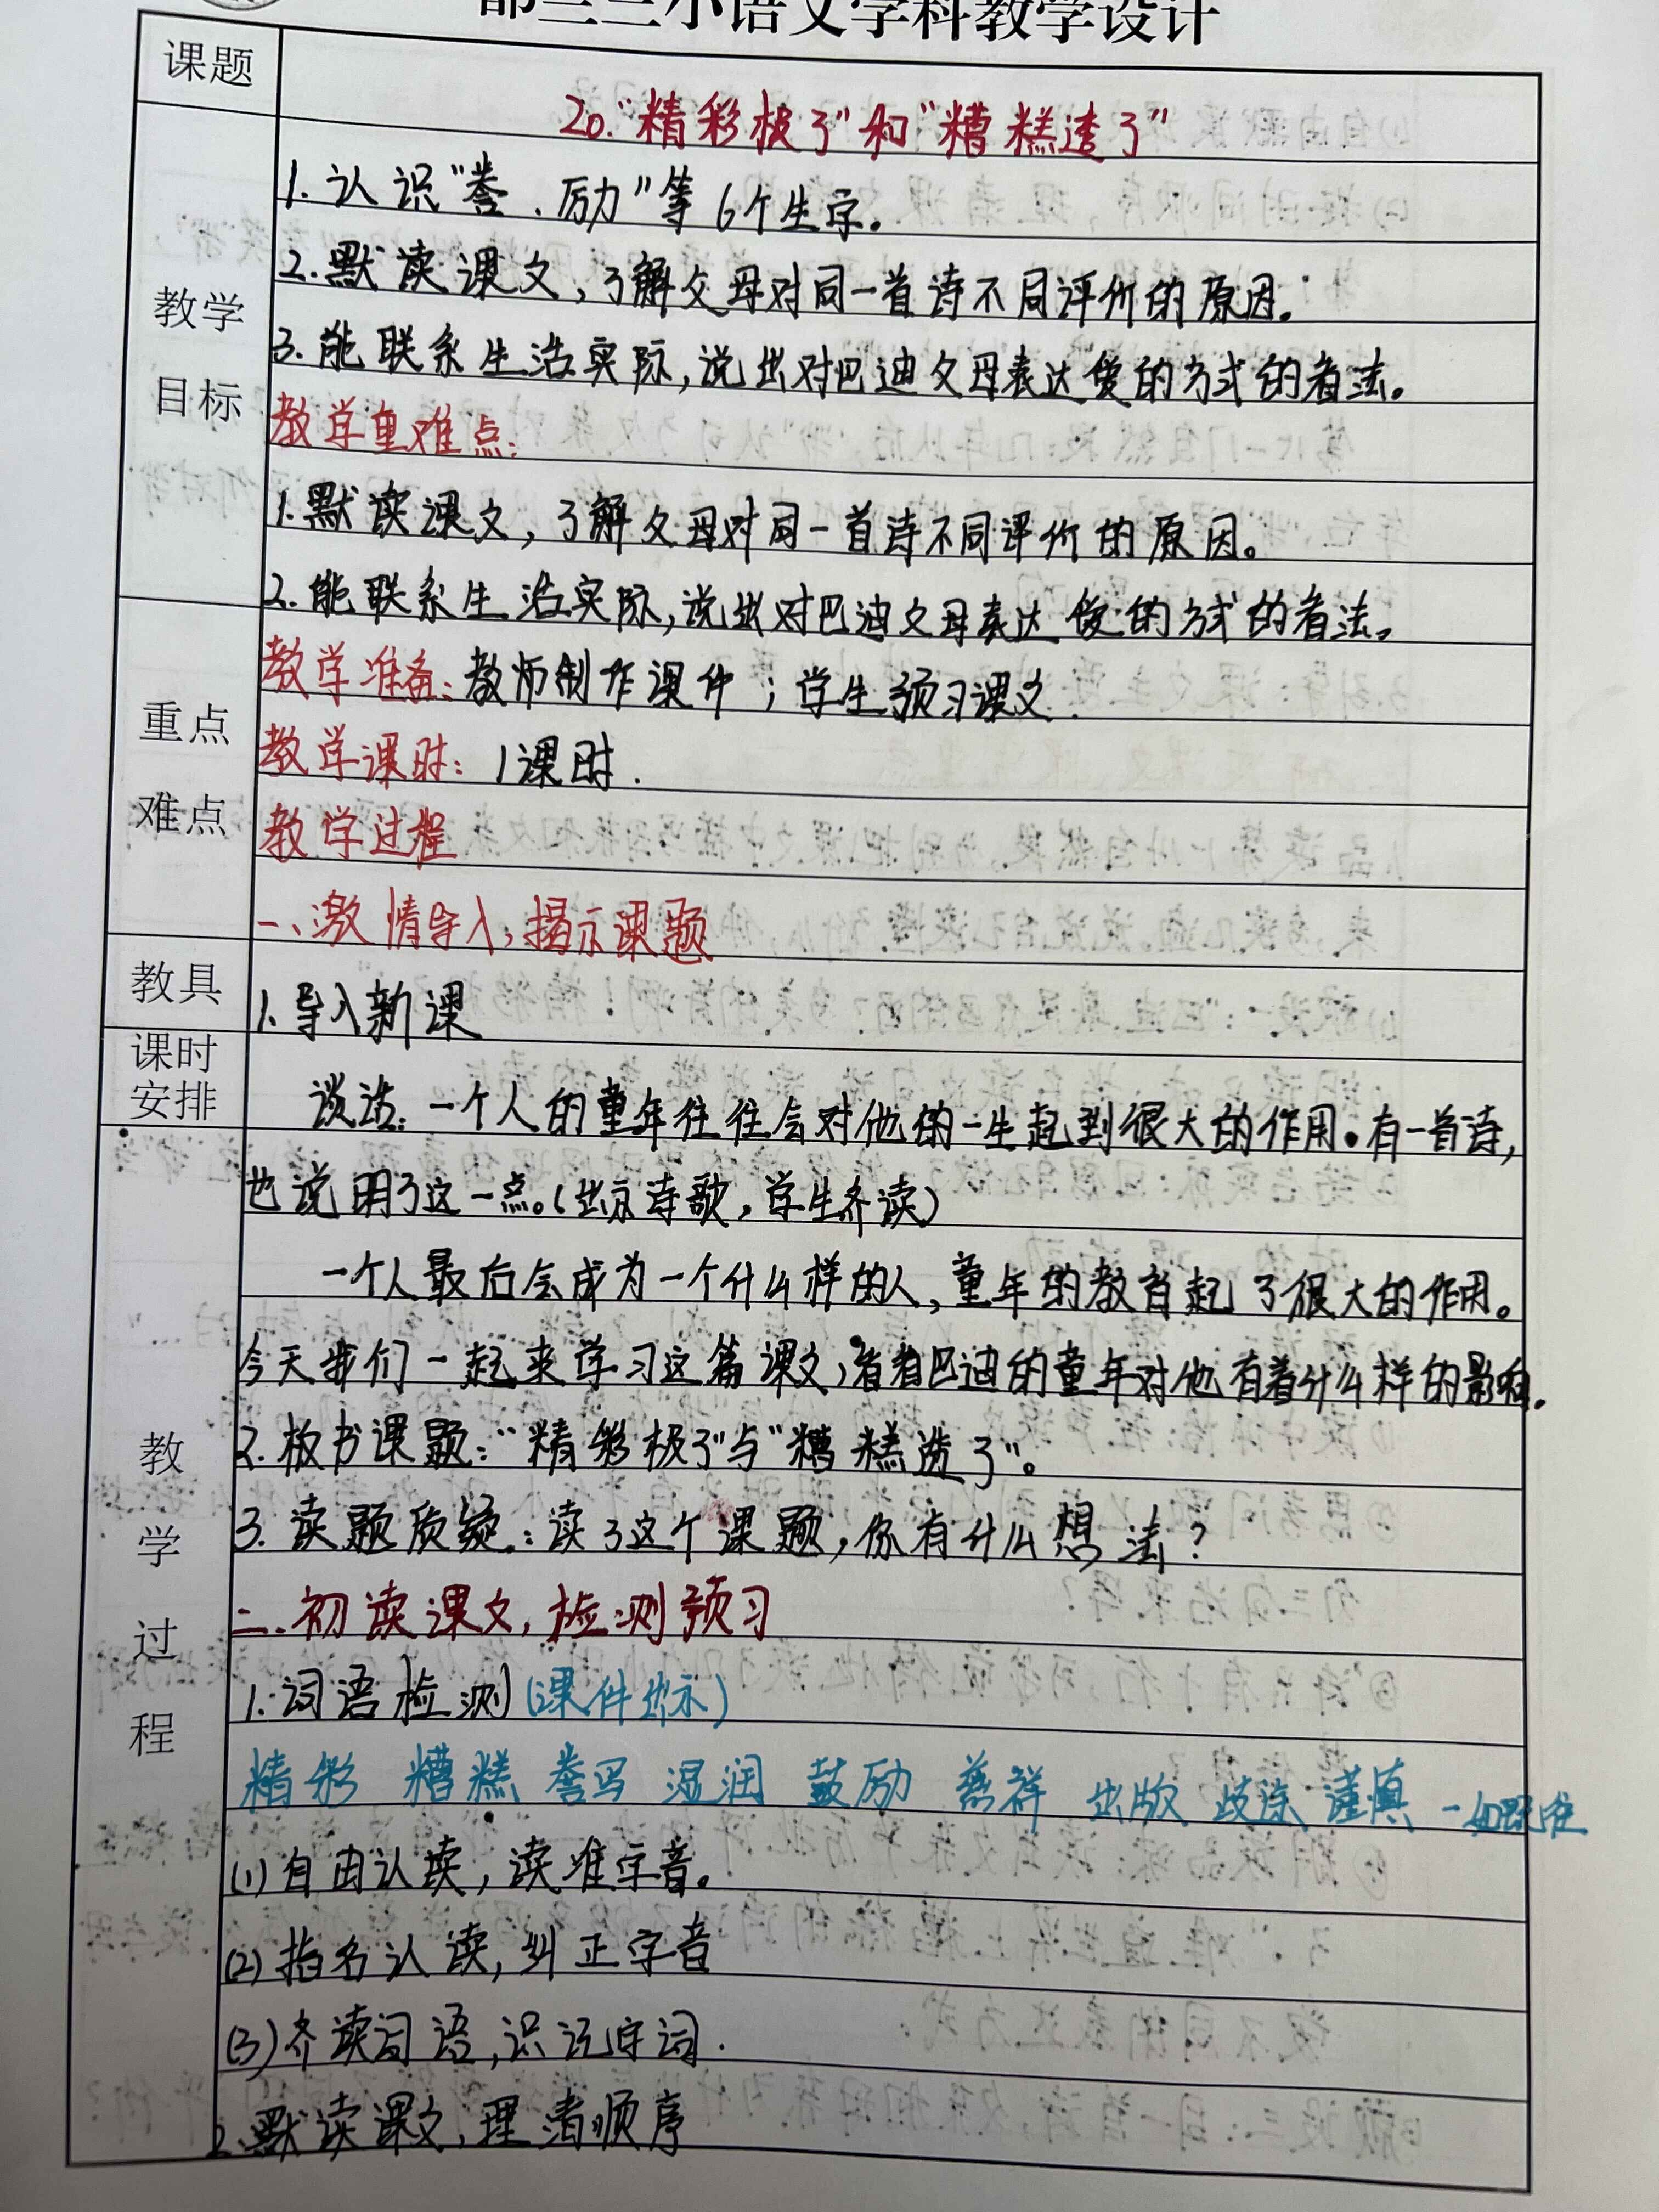 小语文学科教学设计
课题
20.“精彩极了”和“糟糕透了”
教学
目标
1.认识“誊、励”等6个生字。
2.默读课文,了解父母对同一首诗不同评价的原因.
3.能联系生活实际,说出对巴迪父母表达爱的方式的看法。
教学重难点:
1.默读课文,了解父母对同一首诗不同评价的原因。
2.能联系生活实际,说出对巴迪父母表达爱的方式的看法。
重点
难点
教学准备:教师制作课件;学生预习课文.
教学课时:1课时.
教学过程
一、激情导入,揭示课题
教具
1.导入新课
课时
安排
谈话:一个人的童年往往会对他的一生起到很大的作用。有一首诗,
也说明了这一点。(出示诗歌,学生齐读)
一个人最后会成为一个什么样的人,童年的教育起了很大的作用。
今天我们一起来学习这篇课文,看看巴迪的童年对他有着什么样的影响.
教
学
过
程
2.板书课题:“精彩极了”与“糟糕透了”。
3.读题质疑:读了这个课题,你有什么想法?
二.初读课文,检测预习
1.词语检测(课件出示)
精彩 糟糕 誊写 湿润 鼓励 慈祥 出版 歧途 谨慎 一如既往
(1)自由认读,读准字音。
(2)指名认读,纠正字音
(3)齐读词语,识记字词.
2.默读课文,理清顺序